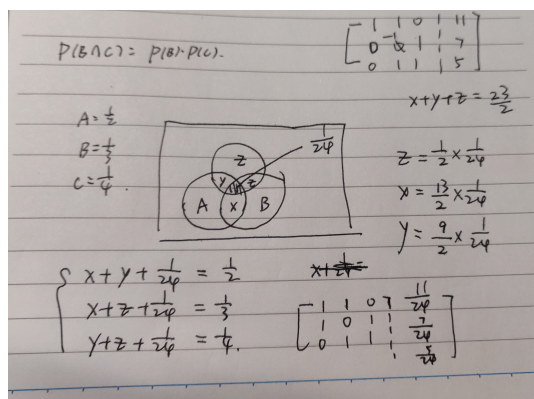 P(B∩C) = P(B)·P(C).
[1 1 0 1 11
0 -1 1 1 7
0 1 1 1 5]
x+y+z = 23/2
A = 1/2
B = 1/3
C = 1/4.
1/24
z
y z
A x B
z = 1/2 × 1/24
x = 13/2 × 1/24
y = 9/2 × 1/24
{ x + y + 1/24 = 1/2
x + z + 1/24 = 1/3
y + z + 1/24 = 1/4.
[1 1 0 1 11/24
1 0 1 1 7/24
0 1 1 1 5/24]